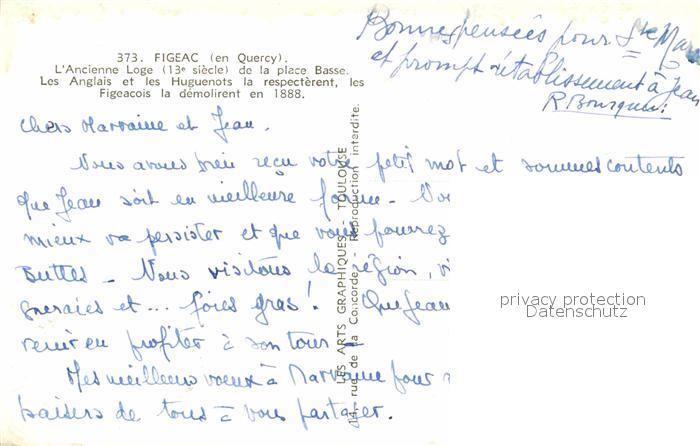 373. FIGEAC (en Quercy).
L'Ancienne Loge (13e siècle) de la place Basse.
Les Anglais et les Huguenots la respectèrent, les
Figeacois la démolirent en 1888.
Bonnes pensées pour Ste Mar
et prompt rétablissement à Jean
R. Bourquin
Chers Marraine et Jean,
Nous avons bien reçu votre petit mot et sommes contents
que Jean soit en meilleure forme -
mieux va persister et que vous pourrez
Buttes - Nous visitons la région,
et... foies gras! Que Jean
venir en profiter à son tour -
Mes meilleurs voeux à Marraine pour
baisers de tous à vous partager.
LES ARTS GRAPHIQUES, TOULOUSE
14, rue de la Concorde. Reproduction interdite.
privacy protection
Datenschutz